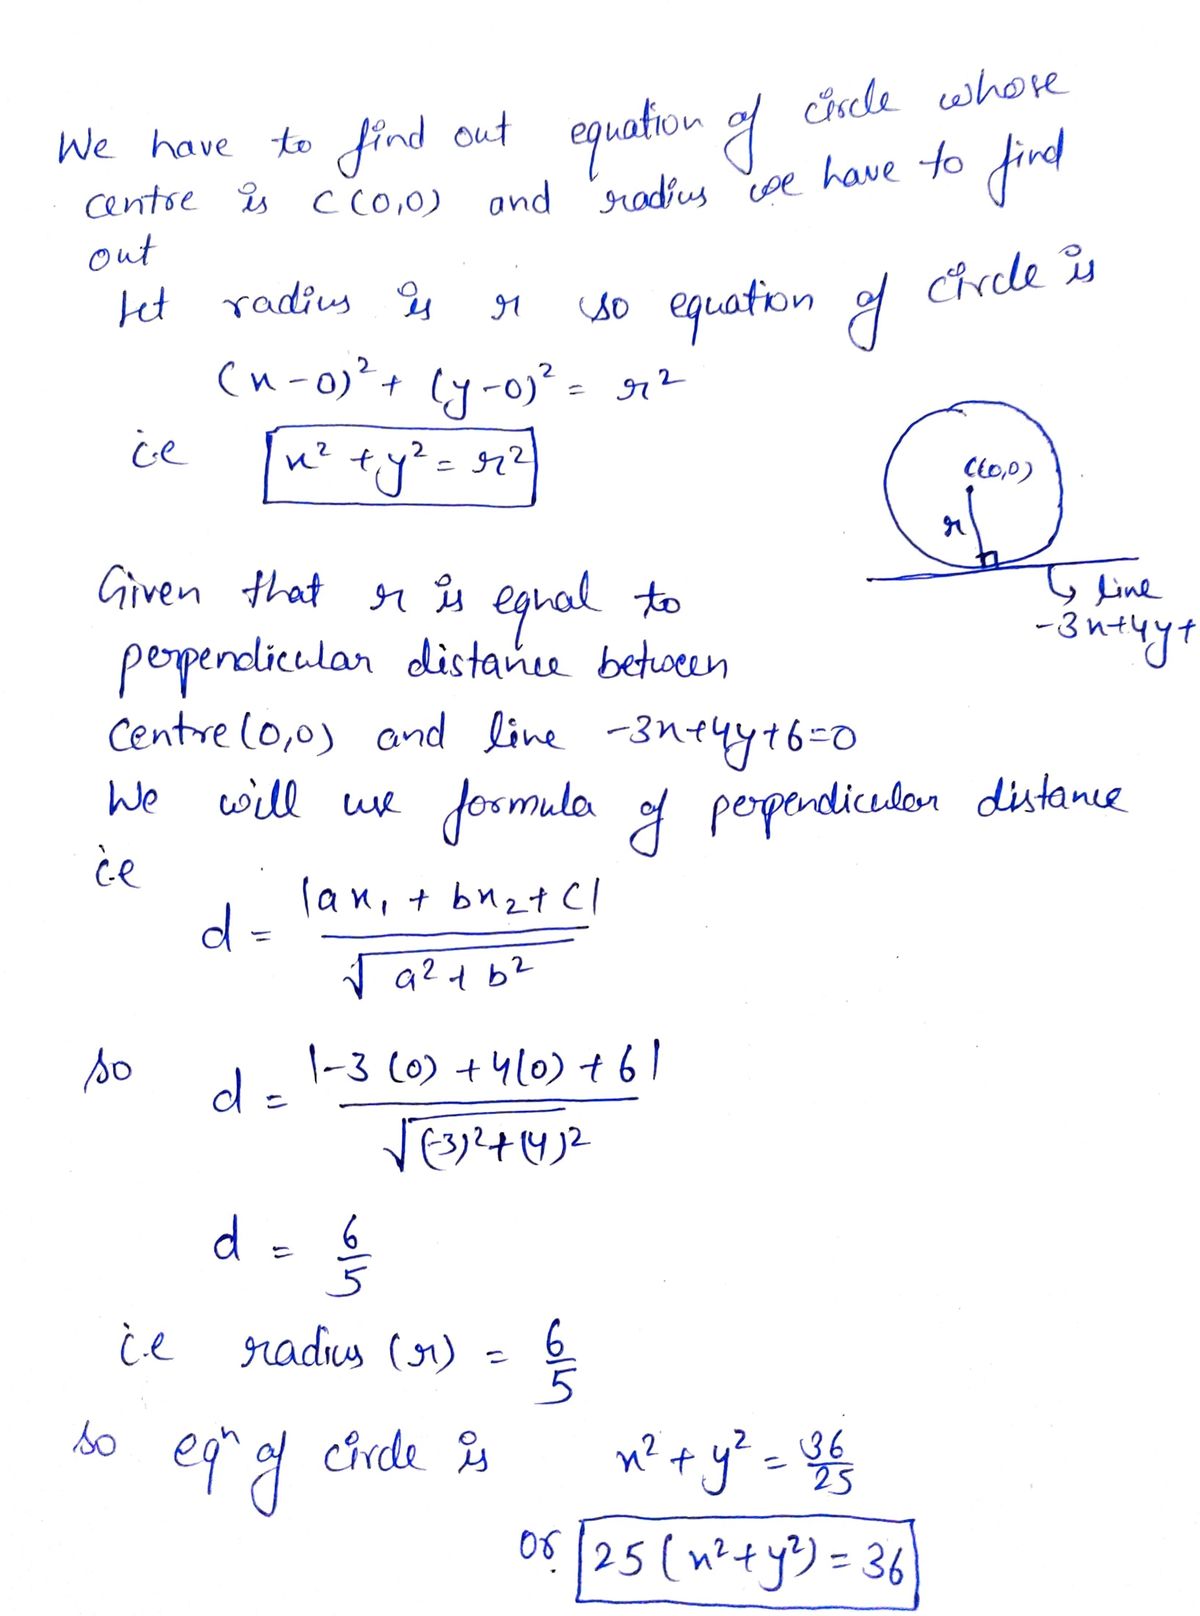 We have to find out equation of circle whose
centre is C(0,0) and radius we have to find
out
Let radius is r so equation of circle is
(x-0)² + (y-0)² = r²
i.e x² + y² = r²
C(0,0)
r
line
-3x+4y+
Given that r is equal to
perpendicular distance between
Centre (0,0) and line -3x+4y+6=0
We will use formula of perpendicular distance
i.e
d = |ax₁ + bx₂ + c| / √a² + b²
so d = |-3(0) + 4(0) + 6| / √(-3)² + (4)²
d = 6/5
i.e radius (r) = 6/5
so eqⁿ of circle is x² + y² = 36/25
or 25(x²+y²) = 36